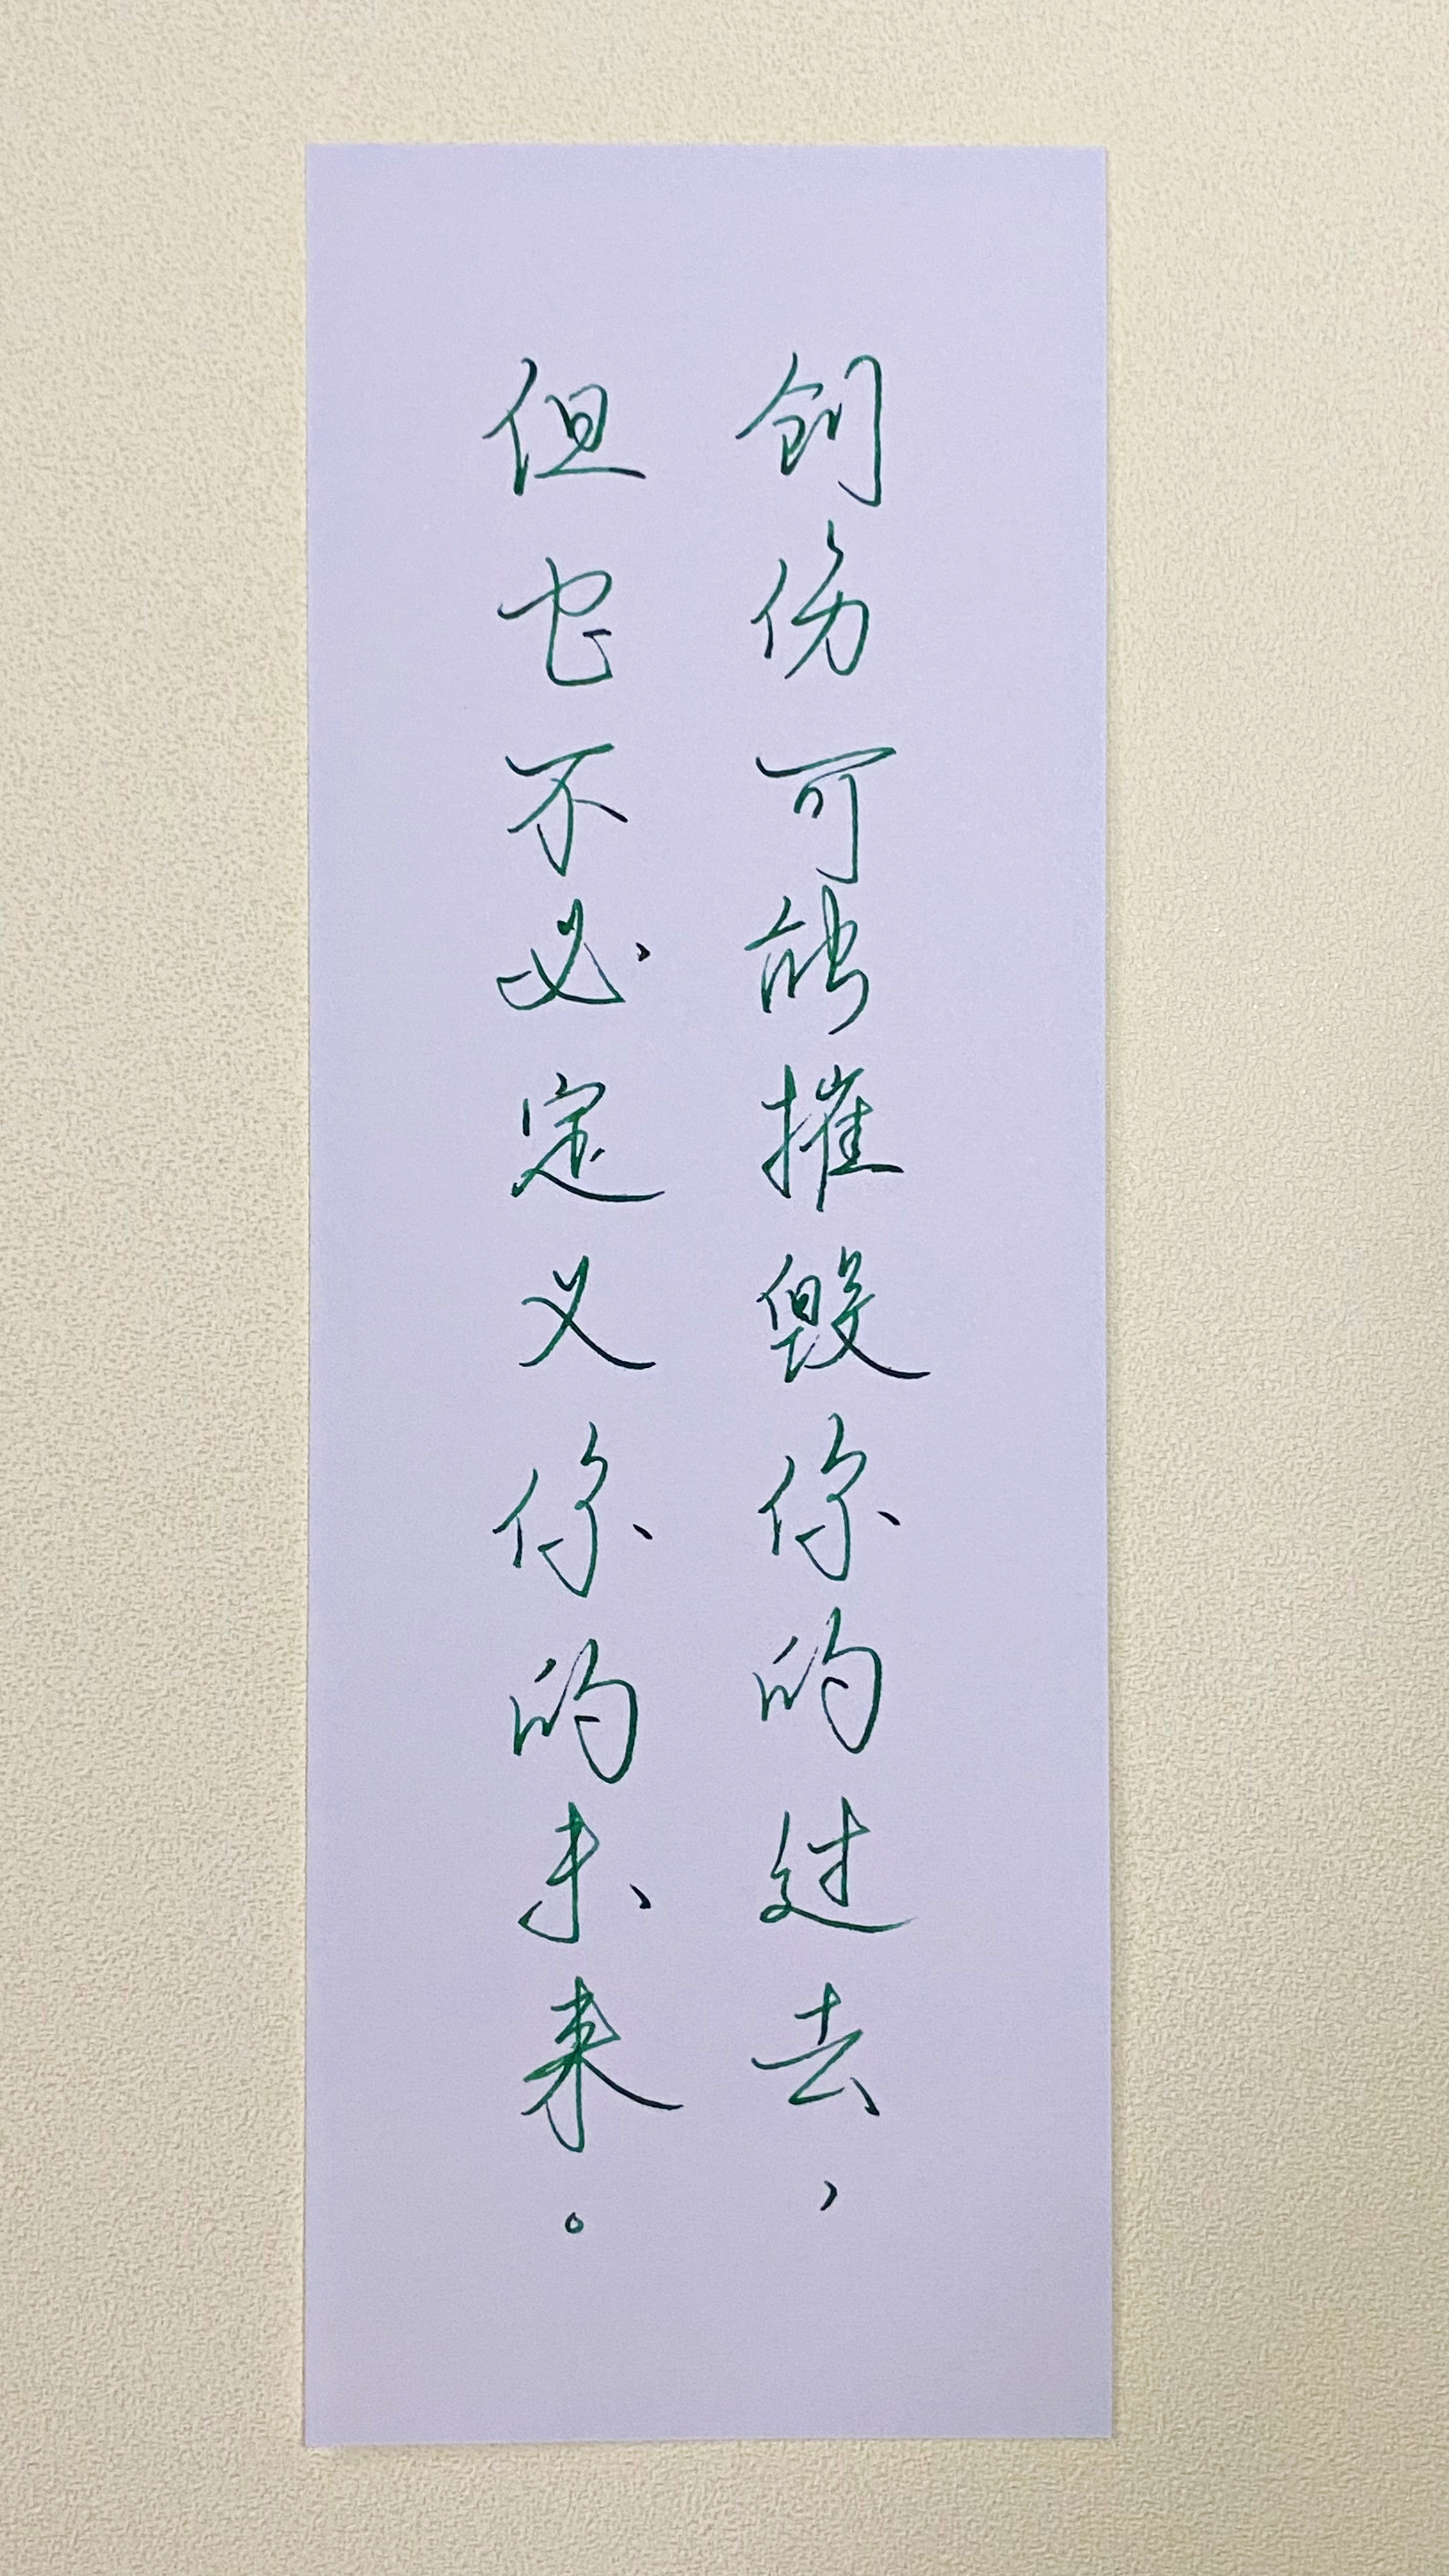 创伤可能摧毁你的过去，
但它不必定义你的未来。